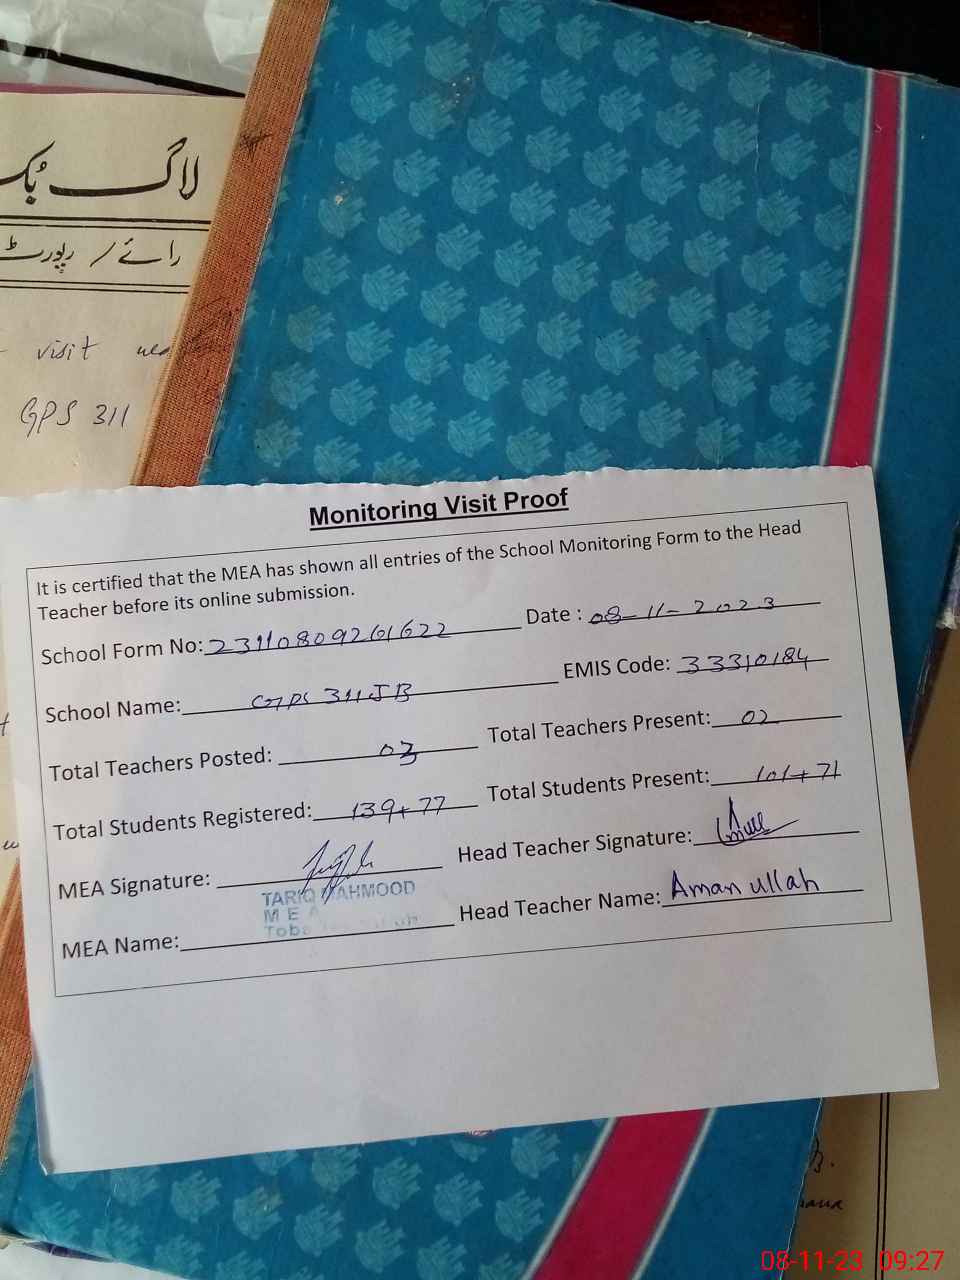 لاگ بُک
رائے / رپورٹ
visit
GPS 311
Monitoring Visit Proof
It is certified that the MEA has shown all entries of the School Monitoring Form to the Head
Teacher before its online submission.
School Form No: 23110809261622 Date : 08-11-2023
School Name: GPS 311JB EMIS Code: 33310184
Total Teachers Posted: 03 Total Teachers Present: 02
Total Students Registered: 139+77 Total Students Present: 101+71
MEA Signature: Head Teacher Signature:
TARIQ MAHMOOD
M E A
Toba
MEA Name: Head Teacher Name: Aman ullah
08-11-23 09:27